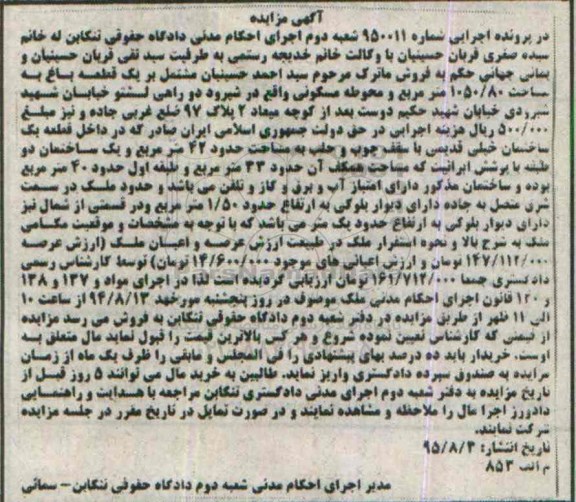 آگهی مزایده
در پرونده اجرایی شماره ۹۵۰۰۱۱ شعبه دوم اجرای احکام مدنی دادگاه حقوقی تنکابن له خانم
سیده صغری قربان حسینیان با وکالت خانم خدیجه رستمی به طرفیت سید تقی قربان حسینیان و
یمانی جهانی حکم به فروش ماترک مرحوم سید احمد حسینیان مشتمل بر یک قطعه باغ به
مساحت ۱۰۵۰/۸۰ متر مربع و محوطه مسکونی واقع در شیرود دو راهی لشتو خیابان شهید
شیرودی خیابان شهید حکیم دوست بعد از کوچه میعاد ۲ پلاک ۹۷ ضلع غربی جاده و نیز مبلغ
۵۰۰/۰۰۰ ریال هزینه اجرایی در حق دولت جمهوری اسلامی ایران صادر که در داخل قطعه یک
ساختمان خیلی قدیمی با سقف چوب و حلب به مساحت حدود ۴۲ متر مربع و یک ساختمان دو
طبقه با پرشش ایرانیت که مساحت همکف آن حدود ۳۳ متر مربع و طبقه اول حدود ۴۰ متر مربع
بوده و ساختمان مذکور دارای امتیاز آب و برق و گاز و تلفن می باشد و حدود ملک در سمت
شرق متصل به جاده دارای دیوار بلوکی به ارتفاع حدود ۱/۵۰ متر مربع ودر قسمتی از شمال نیز
دارای دیوار بلوکی به ارتفاع حدود یک متر می باشد که با توجه به مشخصات و موقعیت مکانی
ملک به شرح بالا و نحوه استقرار ملک در طبیعت ارزش عرصه و اعیان ملک (ارزش عرصه
۱۴۷/۱۱۲/۰۰۰ تومان و ارزش اعیانی های موجود ۱۴/۶۰۰/۰۰۰ تومان) توسط کارشناس رسمی
دادگستری جمعا ۱۶۱/۷۱۲/۰۰۰ تومان ارزیابی گردیده است لذا در اجرای مواد و ۱۳۷ و ۱۳۸
و ۱۴۰ قانون اجرای احکام مدنی ملک موصوف در روز پنجشنبه مورخهد ۹۴/۸/۱۳ از ساعت ۱۰
الی ۱۱ ظهر از طریق مزایده در دفتر شعبه دوم دادگاه حقوقی تنکابن به فروش می رسد مزایده
از قیمتی که کارشناس تعیین نموده شروع و هر کس بالاترین قیمت را قبول نماید مال متعلق به
اوست. خریدار باید ده درصد بهای پیشنهادی را فی المجلس و مابقی را ظرف یک ماه از زمان
مزایده به صندوق سپرده دادگستری واریز نماید. طالبین به خرید مال می توانند ۵ روز قبل از
تاریخ مزایده به دفتر شعبه دوم اجرای مدنی دادگستری تنکابن مراجعه با هدایت و راهنمایی
دادورز اجرا مال را ملاحظه و مشاهده نمایند و در صورت تمایل در تاریخ مقرر در جلسه مزایده
شرکت نمایند.
تاریخ انتشار: ۹۵/۸/۳
م الف ۸۵۳
مدیر اجرای احکام مدنی شعبه دوم دادگاه حقوقی تنکابن – سمائی